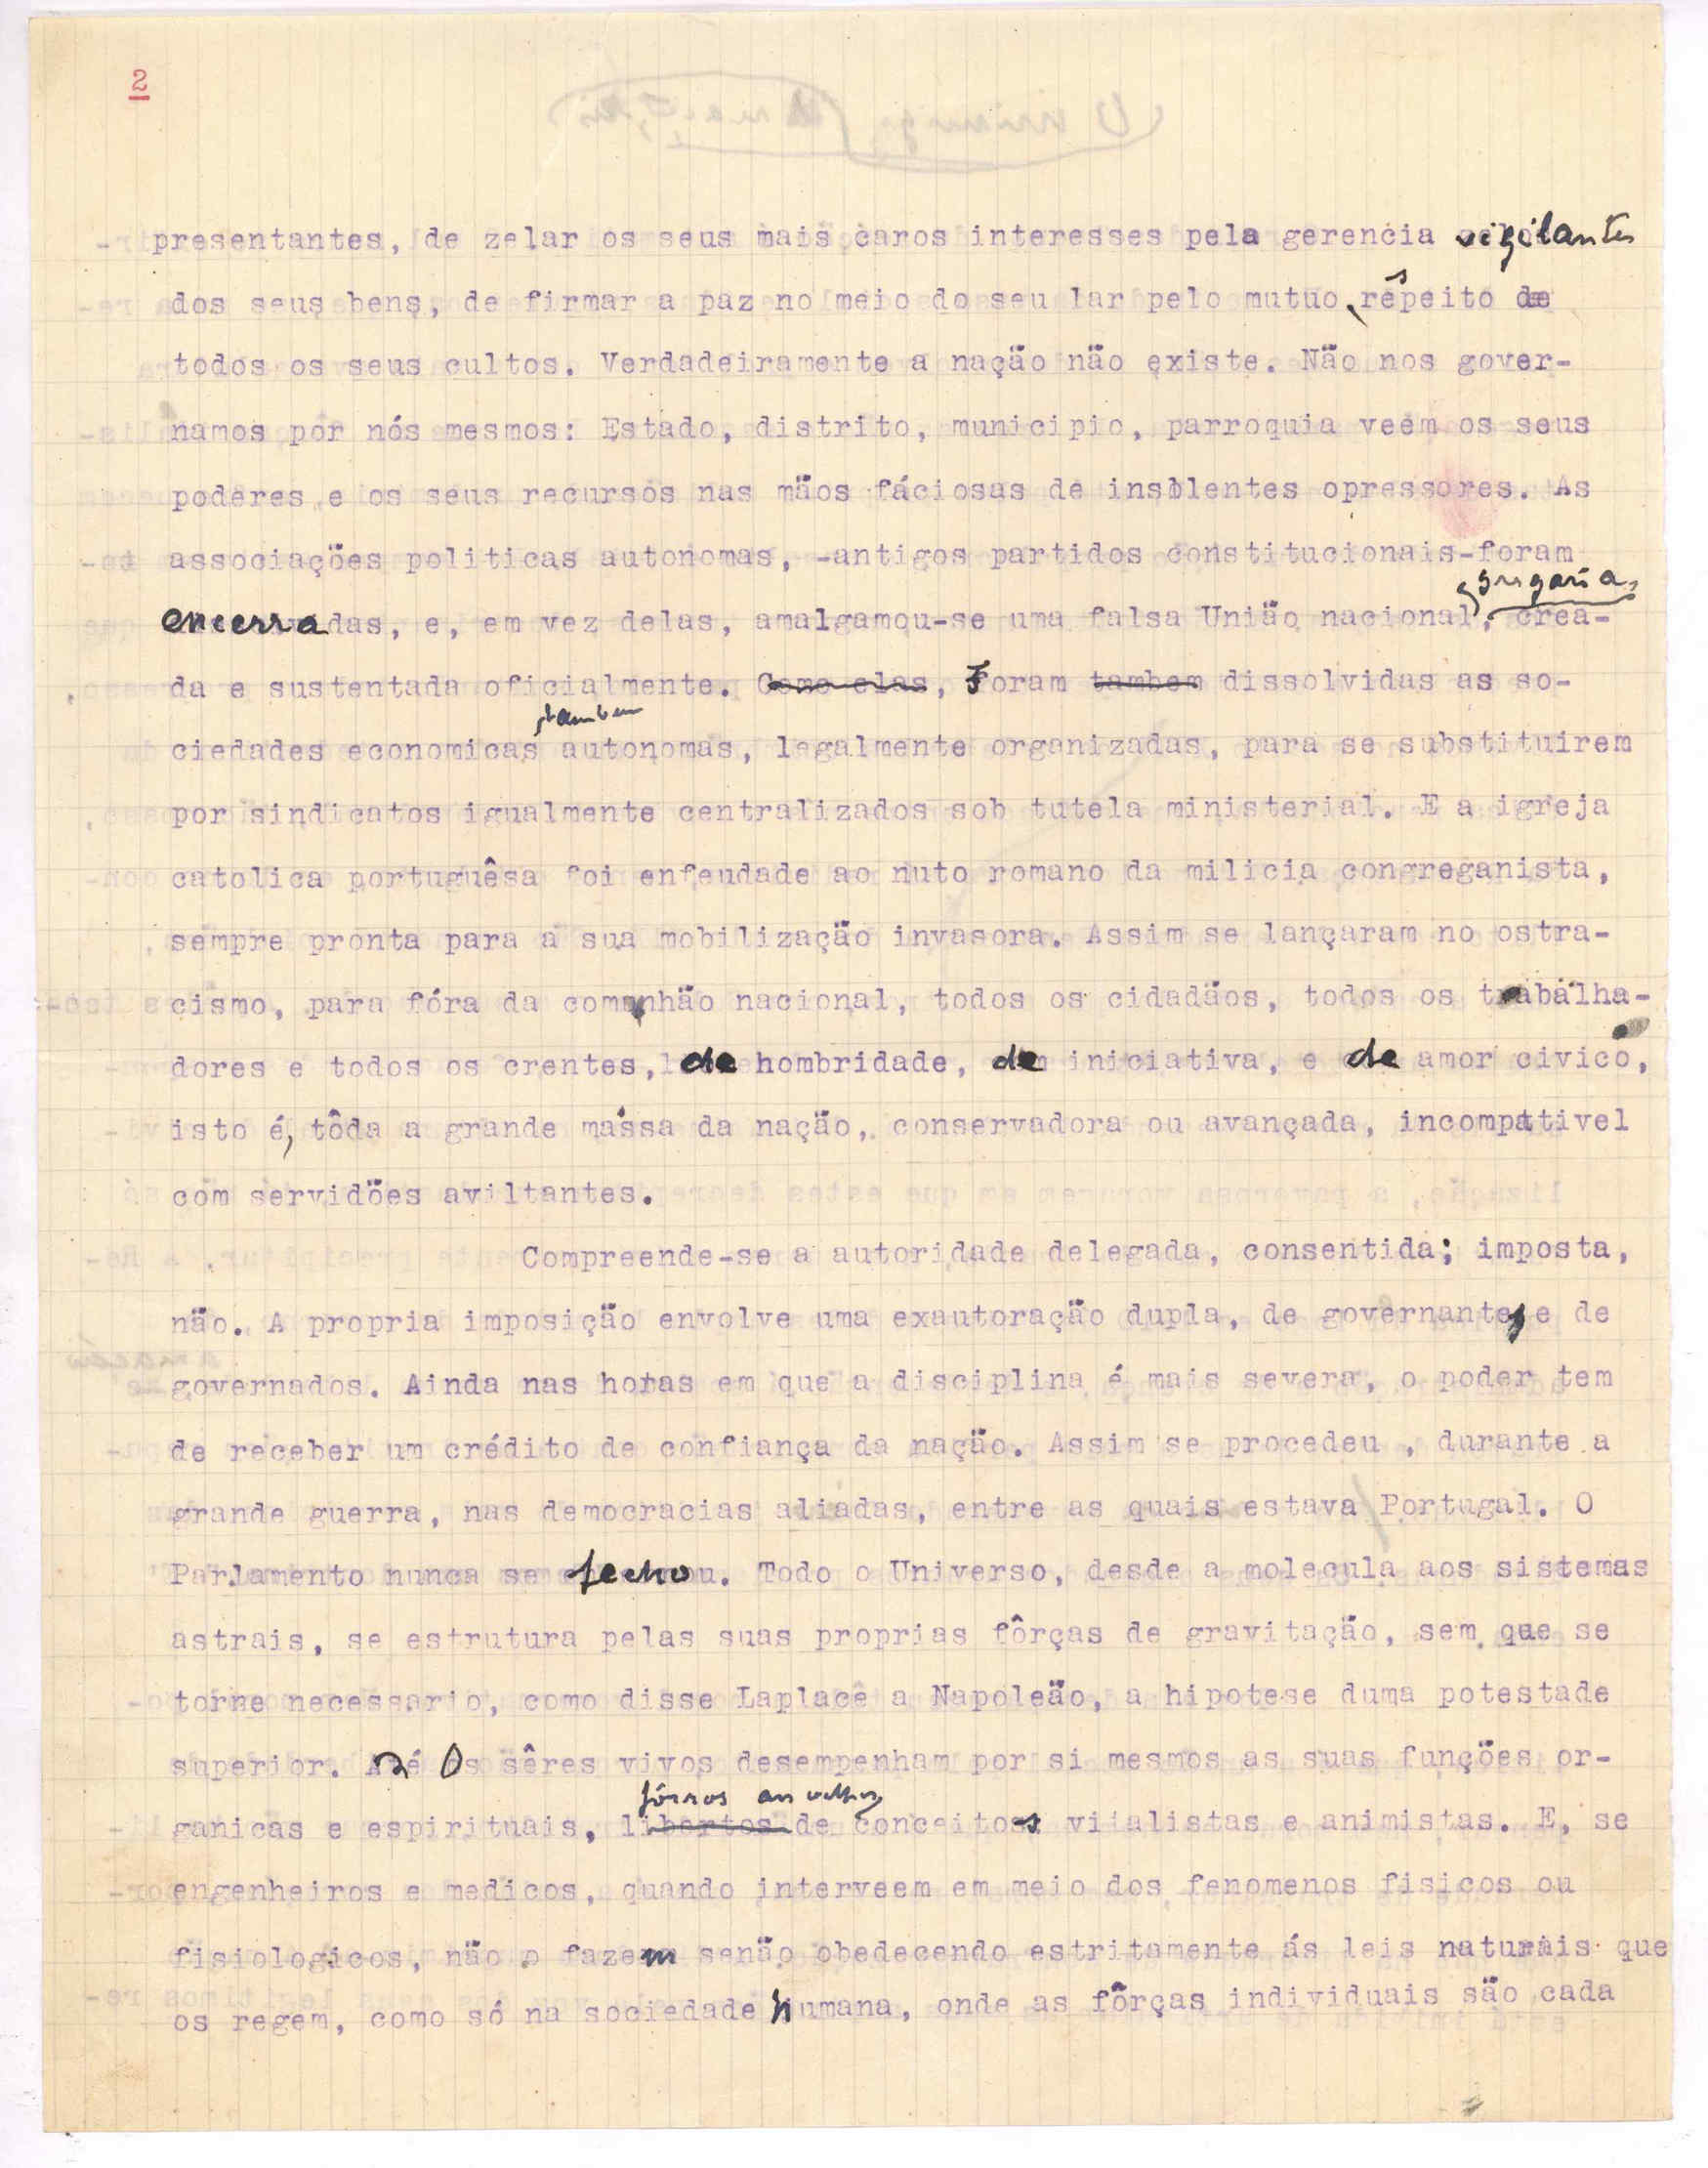 2
presentantes, de zelar os seus mais caros interesses pela gerencia vigilante
dos seus bens, de firmar a paz no meio do seu lar pelo mutuo rêspeito de
todos os seus cultos. Verdadeiramente a nação não existe. Não nos gover-
namos por nós mesmos: Estado, distrito, municipio, parroquia veem os seus
poderes e os seus recursos nas mãos fáciosas de insolentes opressores. As
associações politicas autonomas, -antigos partidos constitucionais-foram
gregaria,
encerradas, e, em vez delas, amalgamou-se uma falsa União nacional, crea-
da e sustentada oficialmente. Como elas, Foram tambem dissolvidas as so-
tambem
ciedades economicas autonomas, legalmente organizadas, para se substituirem
por sindicatos igualmente centralizados sob tutela ministerial. E a igreja
catolica portuguêsa foi enfeudade ao nuto romano da milicia congreganista,
sempre pronta para a sua mobilização invasora. Assim se lançaram no ostra-
cismo, para fóra da comunhão nacional, todos os cidadãos, todos os trabalha-
dores e todos os crentes, de hombridade, de iniciativa, e de amor civico,
isto é, tôda a grande massa da nação, conservadora ou avançada, incompativel
com servidões aviltantes.
Compreende-se a autoridade delegada, consentida; imposta,
não. A propria imposição envolve uma exautoração dupla, de governantes e de
governados. Ainda nas horas em que a disciplina é mais severa, o poder tem
de receber um crédito de confiança da nação. Assim se procedeu , durante a
grande guerra, nas democracias aliadas, entre as quais estava Portugal. O
Parlamento nunca se fechou. Todo o Universo, desde a molecula aos sistemas
astrais, se estrutura pelas suas proprias fôrças de gravitação, sem que se
torne necessario, como disse Laplace a Napoleão, a hipotese duma potestade
superior. Os sêres vivos desempenham por si mesmos as suas funções or-
fórros
ganicas e espirituais, libertos de conceitos vitalistas e animistas. E, se
engenheiros e medicos, quando interveem em meio dos fenomenos fisicos ou
fisiologicos, não o fazem senão obedecendo estritamente ás leis naturais que
os regem, como só na sociedade humana, onde as fôrças individuais são cada